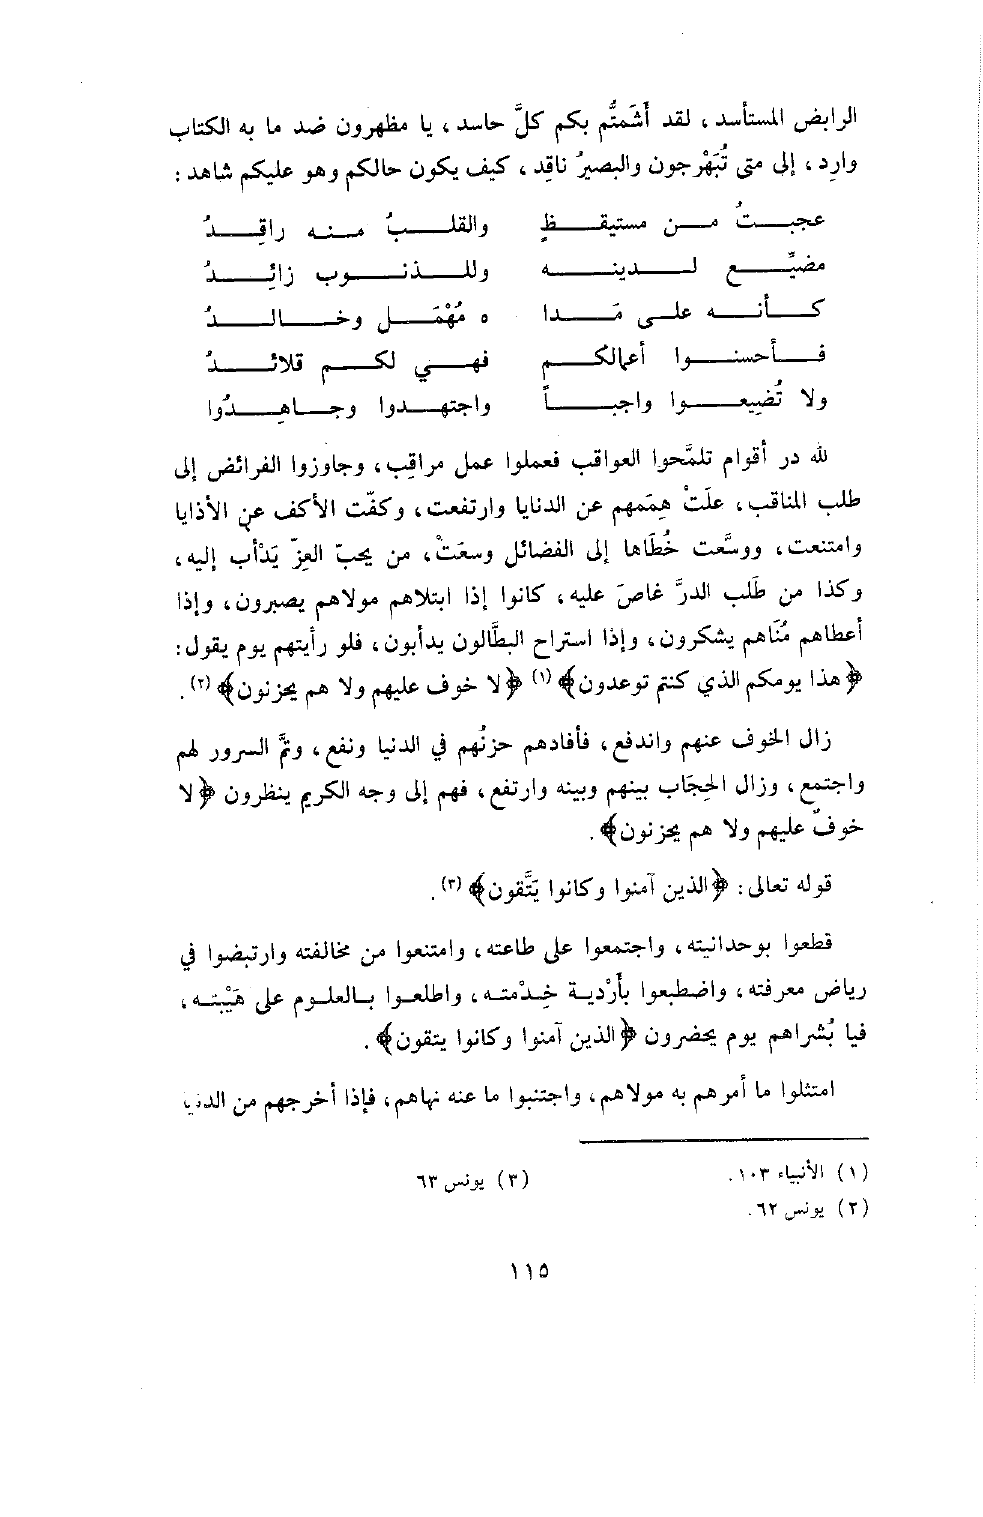 الرابض المستأسد، لقد أَشَمتُّم بكم كلَّ حاسد، يا مظهرون ضد ما به الكتاب
وارِد، إلى متى تُبَهْرجون والبصيرُ ناقِد، كيف يكون حالكم وهو عليكم شاهد:
عجبتُ من مستيقظٍ والقلبُ منه راقِدُ
مضيِّع لدينه وللذنوب زائِدُ
كأنه على مَدا ه مُهْمَل وخالدُ
فأحسنوا أعمالكم فهي لكم قلائدُ
ولا تُضيعوا واجباً واجتهدوا وجاهِدُوا
لله در أقوام تلمَّحوا العواقب فعملوا عمل مراقِب، وجاوزوا الفرائض إلى
طلب المناقب، علَتْ هِمَمهم عن الدنايا وارتفعت، وكفّت الأكف عن الأذايا
وامتنعت، ووسَّعت خُطَاها إلى الفضائل وسعَتْ، من يحبّ العِزّ يَدْأب إليه،
وكذا من طَلب الدرَّ غاصَ عليه، كانوا إذا ابتلاهم مولاهم يصبرون، وإذا
أعطاهم مُنَاهم يشكرون، وإذا استراح البطَّالون يدأبون، فلو رأيتهم يوم يقول:
﴿هذا يومكم الذي كنتم توعدون﴾ (١) ﴿لا خوف عليهم ولا هم يحزنون﴾ (٢).
زال الخوف عنهم واندفع، فأفادهم حزنُهم في الدنيا ونفع، وتمَّ السرور لهم
واجتمع، وزال الحِجَاب بينهم وبينه وارتفع، فهم إلى وجه الكريم ينظرون ﴿لا
خوفٌ عليهم ولا هم يحزنون﴾.
قوله تعالى: ﴿الذين آمنوا وكانوا يَتَّقون﴾ (٣).
قطعوا بوحدانيته، واجتمعوا على طاعته، وامتنعوا من مخالفته وارتبضوا في
رياض معرفته، واضطبعوا بأَرْدية خِدْمته، واطلعوا بالعلوم على هَيْبته،
فيا بُشراهم يوم يحضرون ﴿الذين آمنوا وكانوا يتقون﴾.
امتثلوا ما أمرهم به مولاهم، واجتنبوا ما عنه نهاهم، فإذا أخرجهم من الدنيا
(١) الأنبياء ١٠٣.
(٣) يونس ٦٣
(٢) يونس ٦٢.
١١٥